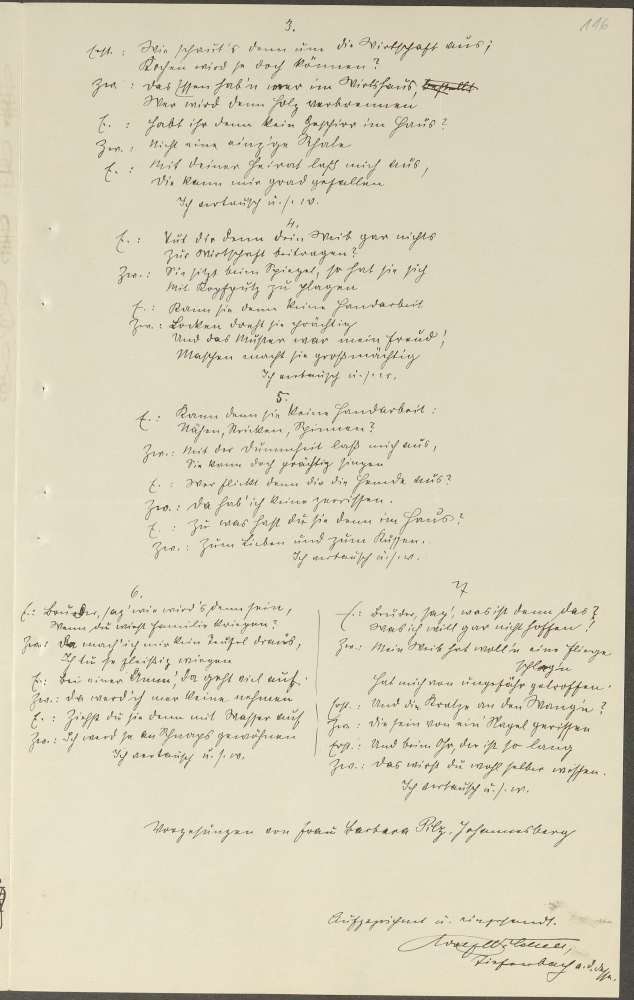 116
3.
Erst. : Wie schaut's denn um die Wirtschaft aus;
Kochen wird se doch können?
Zw. : Das Essen hab'n wer im Wirtshaus,
Wer wird denn Holz verbrennen
E. : Habt ihr denn kein Geschirr im Haus?
Zw. : Nicht eine einz'ge Schale
E. : Mit deiner Heirat laß mich aus,
Die kann mir grad gefallen
Ich vertausch u. s. w.
4.
E. : Tut dir denn dein Weib gar nichts
Zur Wirtschaft beitragen?
Zw. : Sie sitzt beim Spiegel, so hat sie sich
Mit Kopfputz zu plagen
E. : Kann sie denn keine Handarbeit
Zw. : Locken dreht sie prächtig
Und das Muster war mein Freud!
Maschen macht sie großmächtig
Ich vertausch u. s. w.
5.
E. : Kann denn sie keine Handarbeit :
Nähen, Stricken, Spinnen?
Zw. : Mit der Dummheit laß mich aus,
Sie kann doch prächtig singen
E. : Wer flickt denn dir die Hemde aus?
Zw. : Da hab' ich keine zerrissen.
E. : Zu was hast du sie denn im Haus?
Zw. : Zum Lieben und zum Küssen.
Ich vertausch u. s. w.
6.
E. : Bruder, sag' wie wird's denn sein,
Wenn du wirst Familie kriegen?
Zw. : Da mach' ich mir kein Teufel draus,
Ich tu se fleißig wiegen
E. : Bei einer Amm', da geht viel auf.
Zw. : Da werd ich mer keine nehmen
E. : Ziehst du sie denn mit Wasser auf
Zw. : Ich werd se an Schnaps gewöhnen
Ich vertausch u. s. w.
7
E. : Bruder, sag', was ist denn das?
Was ich will gar nicht hoffen!
Zw. : Mein Weib hat woll'n eine Fliege
schlag'n
Hat mich von ungefähr getroffen.
Erst. : Und die Kratze an den Wang'n?
Zw. : Die sein von ein' Nagel gerissen
Erst. : Und beim Ohr, der ist so lang
Zw. : Das wirst du wohl selber wissen.
Ich vertausch u. s. w.
Vorgesungen von Frau Barbara Pilz, Johannesberg
Aufgezeichnet u. eingesandt.
Tiefenbach a. d. Desse.